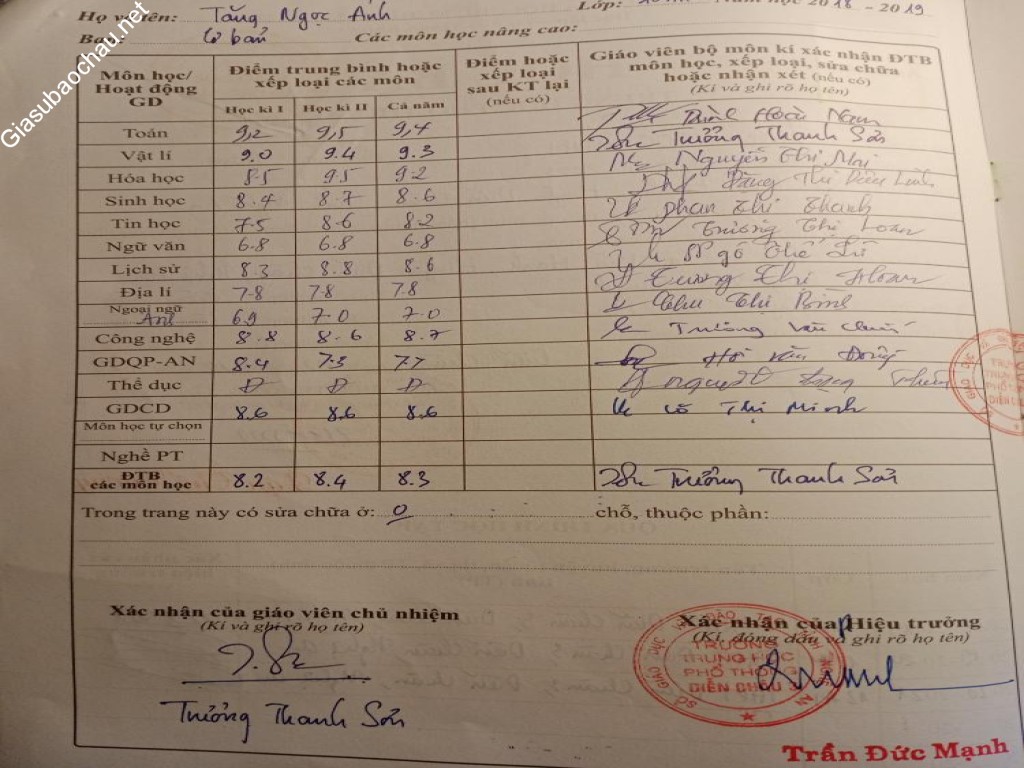 Họ và tên: Tăng Ngọc Ánh Lớp: Năm học 2018 - 2019
Ban: Cơ bản Các môn học nâng cao:
Giasubaochau.net
Môn học/ Hoạt động GD Điểm trung bình hoặc xếp loại các môn Điểm hoặc xếp loại sau KT lại (nếu có) Giáo viên bộ môn kí xác nhận ĐTB môn học, xếp loại, sửa chữa hoặc nhận xét (nếu có) (Kí và ghi rõ họ tên)
Học kì I Học kì II Cả năm
Toán 9,2 9,5 9,4 Hoài Nam
Vật lí 9.0 9.4 9.3 Trưởng Thanh Sơn
Hóa học 8.5 9.5 9.2 Nguyễn Thị Mai
Sinh học 8.4 8.7 8.6 Thị Linh
Tin học 7.5 8.6 8.2 phan Thị Thanh
Ngữ văn 6.8 6.8 6.8 Trương Thị Loan
Lịch sử 8.3 8.8 8.6 Ngô Thế
Địa lí 7.8 7.8 7.8 Thị
Ngoại ngữ Anh 6.9 7.0 7.0 Thị Bình
Công nghệ 8.8 8.6 8.7 Trương Văn
GDQP-AN 8.4 7.3 7.7 Văn
Thể dục Đ Đ Đ
GDCD 8.6 8.6 8.6 Võ Thị Minh
Môn học tự chọn
Nghề PT
ĐTB các môn học 8.2 8.4 8.3 Trưởng Thanh Sơn
Trong trang này có sửa chữa ở: 0 chỗ, thuộc phần:
Xác nhận của giáo viên chủ nhiệm
(Kí và ghi rõ họ tên)
Trưởng Thanh Sơn
Xác nhận của Hiệu trưởng
(Kí, đóng dấu và ghi rõ họ tên)
TRƯỜNG
TRUNG HỌC
PHỔ THÔNG
DIỄN CHÂU 3
Trần Đức Mạnh